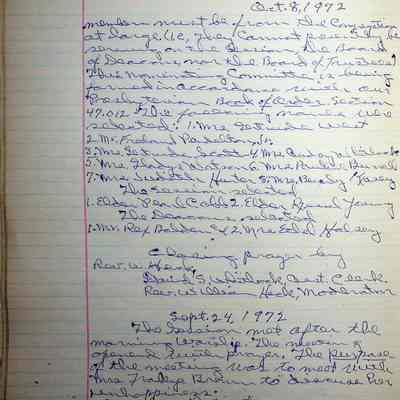 Oct. 8, 1972
members must be from the Congregation
at large (i.e. they cannot possibly be
serving on the Session, the Board
of Deacons, nor the Board of Trustees)
This Nominating Committee is being
formed in accordance with our
Presbyterian Book of Order Section
47.012 The following names were
selected: 1. Mrs Gertrude West
2. Mr. Freland Pendleton, Jr.
3. Mrs. Gertrude Scott 4. Mrs
5. Mrs. Gladys Watson 6. Mrs
7. Mrs Judith Hunter 8. Mrs. Beverly
The Session selected
1. Elder Pearl Cobb 2. Elder Young
The Deacons selected
1. Mr. Rex Bolden & 2. Mrs Edith Halsey
Closing prayer by
Rev. W. Heck,
David S. Whitlock, Asst. Clerk
Rev. William Heck, Moderator
Sept. 24, 1972
The Session met after the
morning Worship. The meeting
opened with prayer. The Purpose
of the meeting was to meet with
Mrs Brown to discuss her
unhappiness.